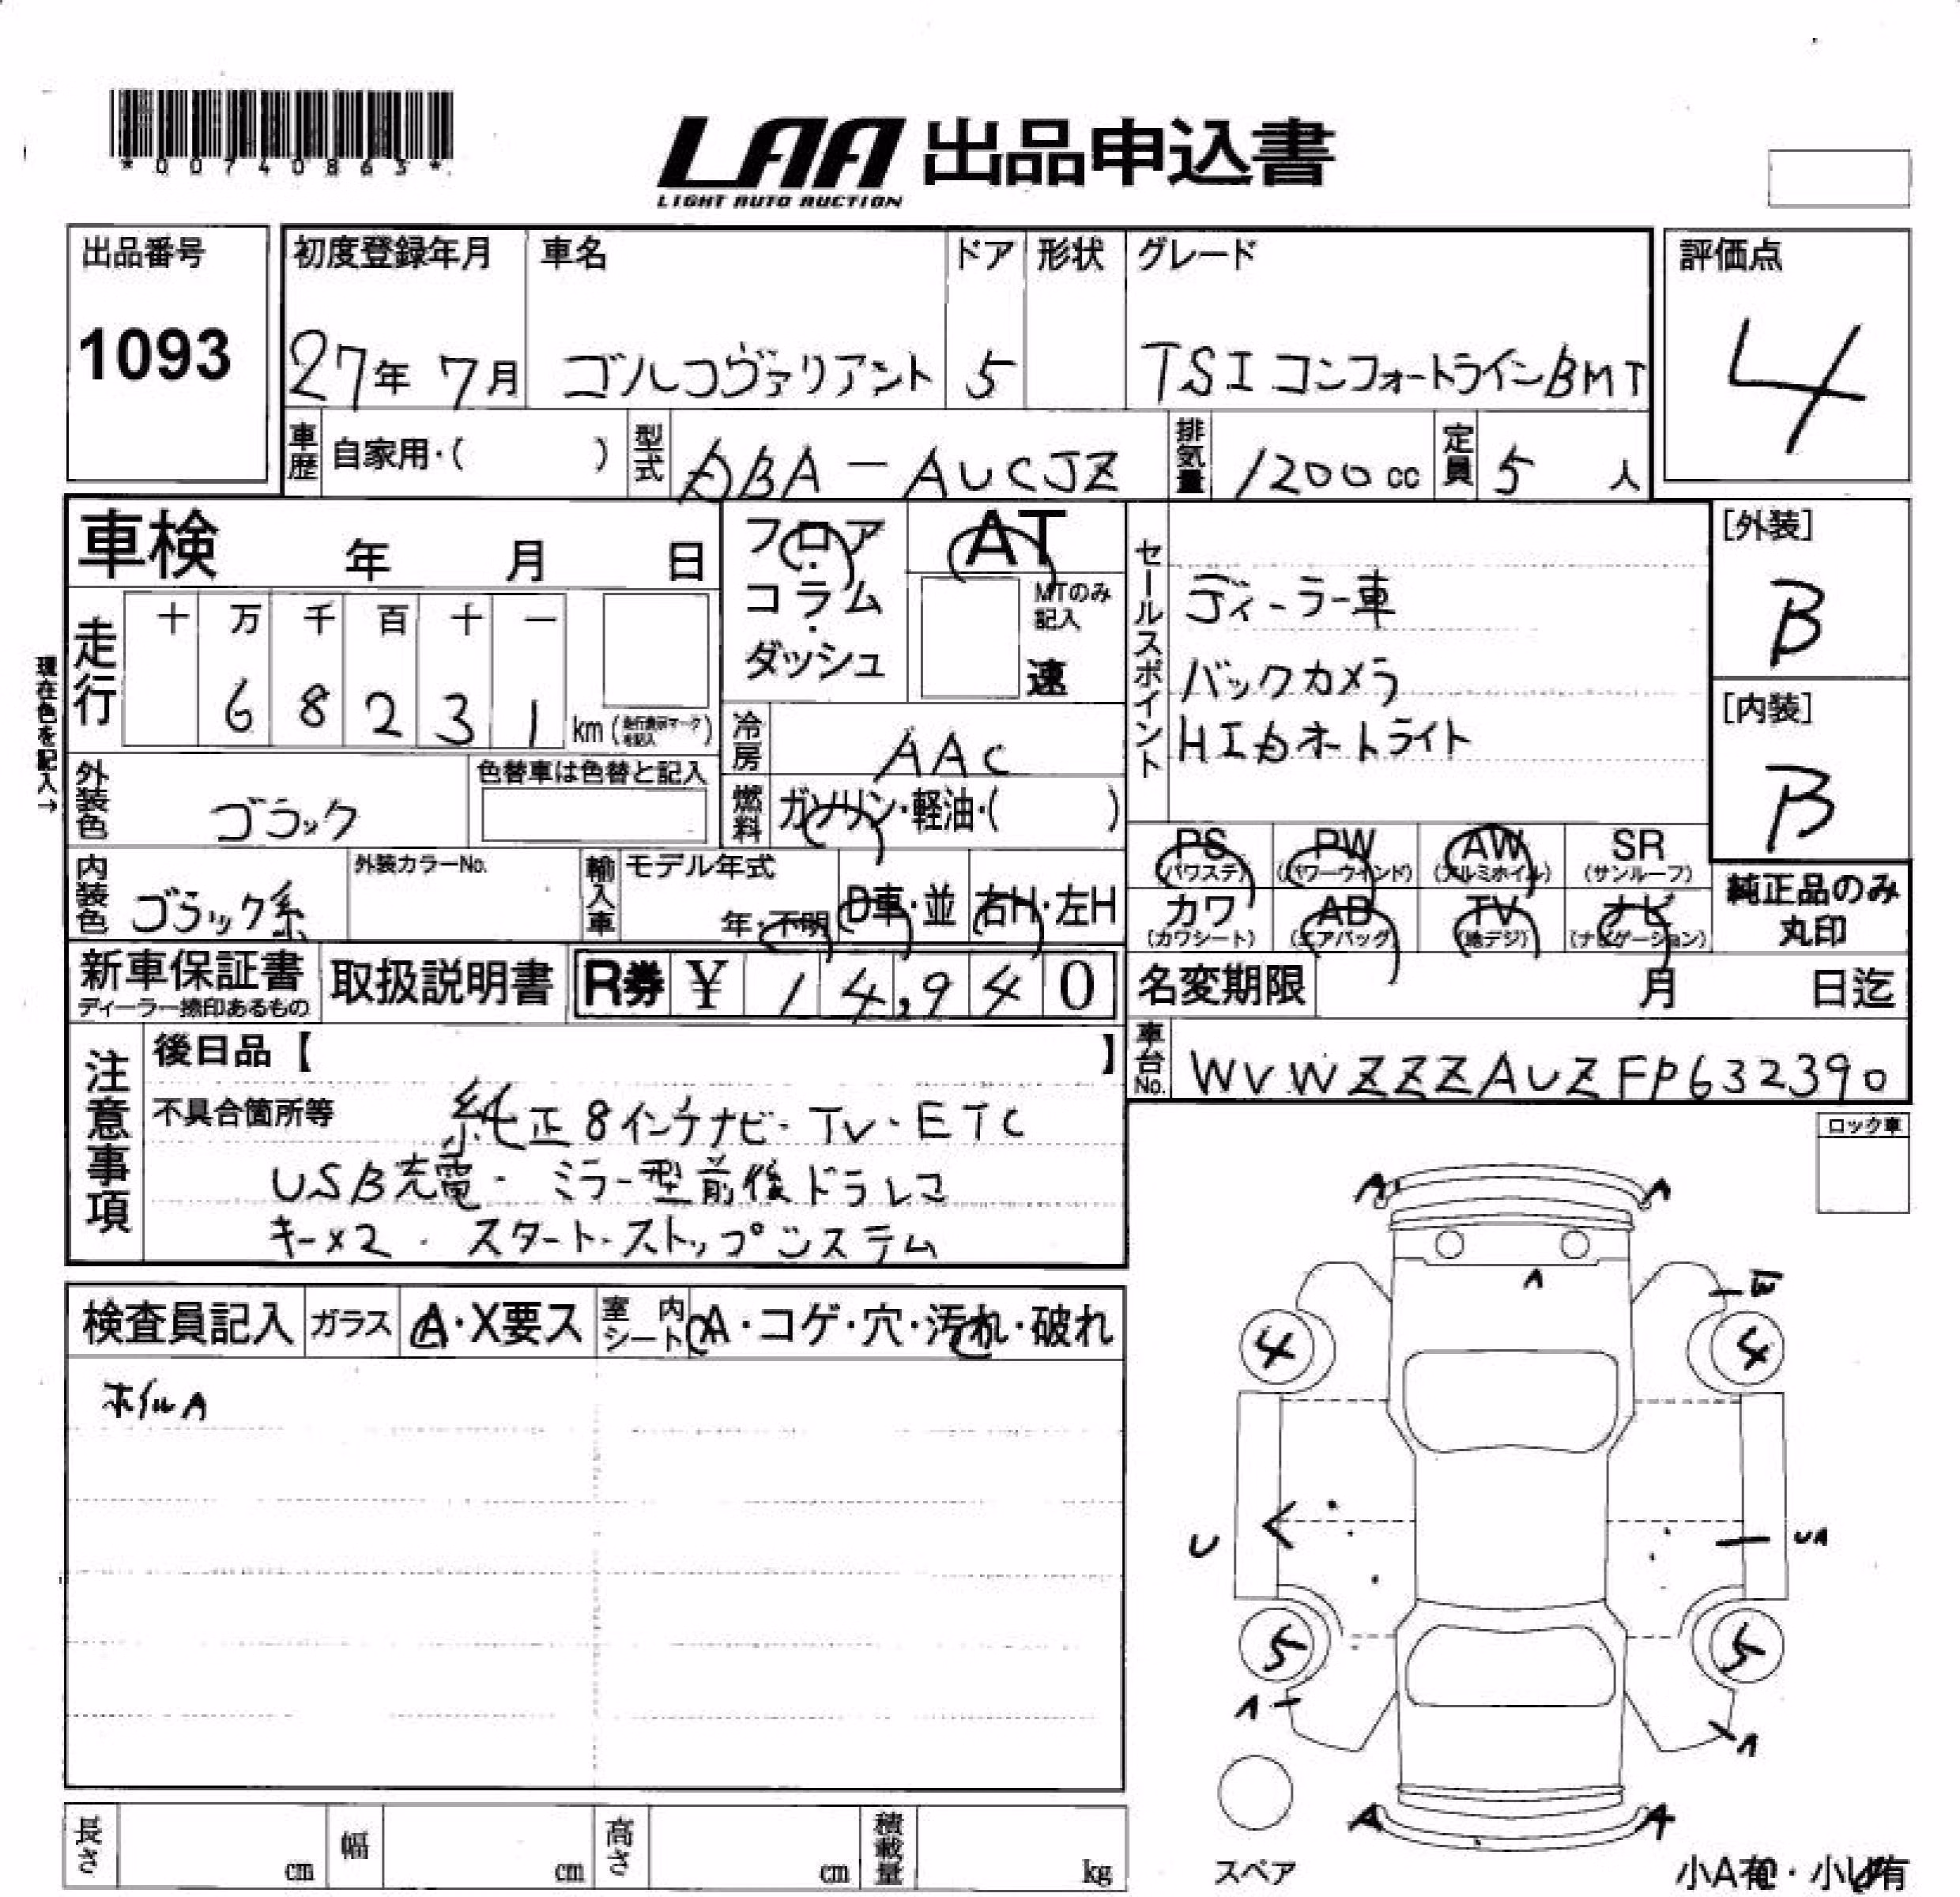 *00740865*
LAA 出品申込書
LIGHT AUTO AUCTION
出品番号 初度登録年月 車名 ドア 形状 グレード 評価点
1093 27年 7月 ゴルフヴァリアント 5 TSIコンフォートラインBMT 4
車歴 自家用・( ) 型式 DBA-AUCJZ 排気量 1200cc 定員 5 人
車検 年 月 日
フロア・コラム・ダッシュ
AT
MTのみ記入
速
セールスポイント
ディーラー車
バックカメラ
HIDオートライト
[外装]
B
[内装]
B
現在色を記入→
走行 十 万 千 百 十 一
6 8 2 3 1 km (走行表示マークを記入)
冷房 AAC
外装色 ブラック 色替車は色替と記入
燃料 ガソリン・軽油・( )
PS (パワステ) PW (パワーウインド) AW (アルミホイル) SR (サンルーフ)
カワ (カワシート) AB (エアバッグ) TV (地デジ) ナビ (ナビゲーション)
純正品のみ丸印
内装色 ブラック系 外装カラーNo. 輸入車 モデル年式 年・不明 D車・並 右H・左H
新車保証書 ディーラー捺印あるもの 取扱説明書 R券 ¥ 14,940
名変期限 月 日迄
車台No. WVWZZZAUZFP632390
注意事項
後日品【 】
不具合箇所等 純正8インチナビ・TV・ETC
USB充電・ミラー型前後ドラレコ
キー×2・スタート・ストップシステム
ロック車
検査員記入 ガラス A・X要ス 室内シート A・コゲ・穴・汚れ・破れ
ホイルA
A A
A
W
4 4
U UA
5 5
A A
A A
スペア
小A有・小U有
長さ cm 幅 cm 高さ cm 積載量 kg